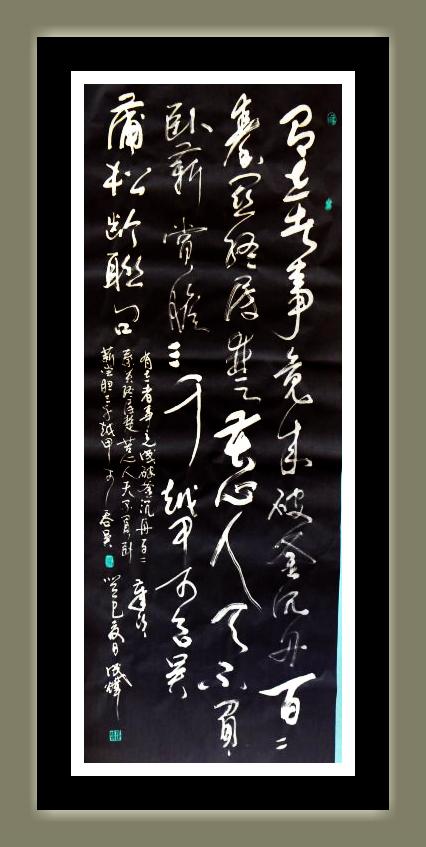 有志者事竟成破釜沉舟百二
秦關終属楚苦心人天不負
卧薪嘗膽三千越甲可吞吴
蒲松龄聯句
有志者事竟成破釜沉舟百二
秦关终属楚苦心人天不負卧
薪尝胆三千越甲可吞吴
癸巳夏日